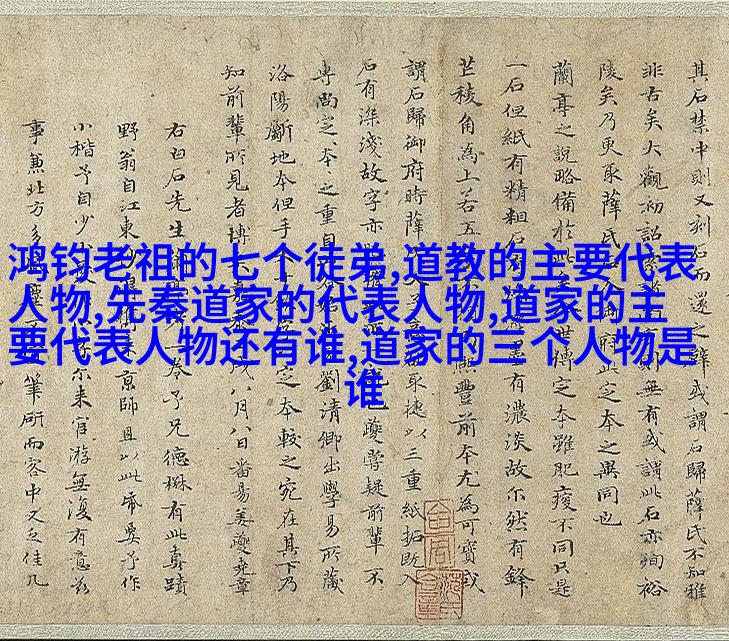 鸿钧老祖的七个徒弟,道教的主要代表
人物,先秦道家的代表人物,道家的主
要代表人物还有谁,道家的三个人物是
谁
其石禁中則又刻石而還之薛或謂石歸薛氏不知雅
非古矣大觀初詔無有或謂此石亦殉裕
陵矣乃更取薛氏府定本之異同也
蘭亭之說略備於此世傳定本雖肥瘦不同只是
一石但紙有精粗石墨有濃淡故尔然有鋒
芒稜角為上若五熙豐前本尤為可寶我
謂石歸御府時薛取捷以三重紙拓既入
石有深淺故字亦夔嘗疑前輩不
專尚定本本之重自劉清卿出學易所藏
洛陽斷地本但手定本較之宛在其下乃
知前輩所見者博八月八日番昜姜夔堯章
右白石先生一卷予兄德楙有此真蹟
野翁自江東京師因以此帋要予作
小楷予自少尔来宦游無復有意兹
事兼北方多筆研而客中又乏佳几